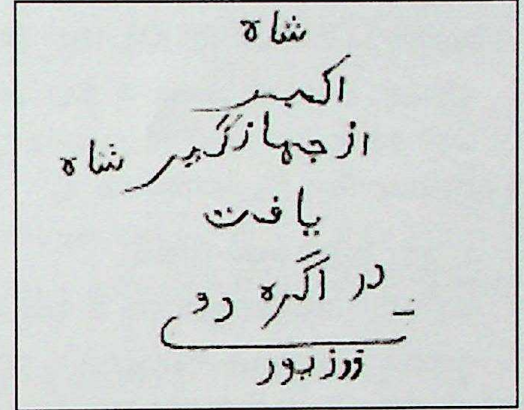 شاه
اکبر
از جهازگیر شاه
یافت
در اگره رو
زرزیور